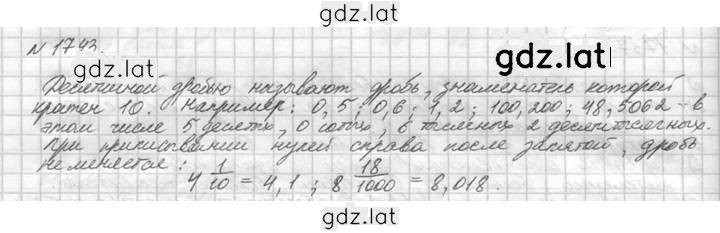 gdz.lat
N 1743.
gdz.lat
Десятичной дробью называют дробь, знаменатель которой
кратен 10. Например: 0,5; 0,6; 1,2; 100,200; 48,5062 - в
этом числе 5 десятых, 0 сотых, 6 тысячных 2 десятитысячных.
При приписывании нулей справа после запятой, дробь
не меняется:
4 1/10 = 4,1 ; 8 18/1000 = 8,018.
gdz.lat